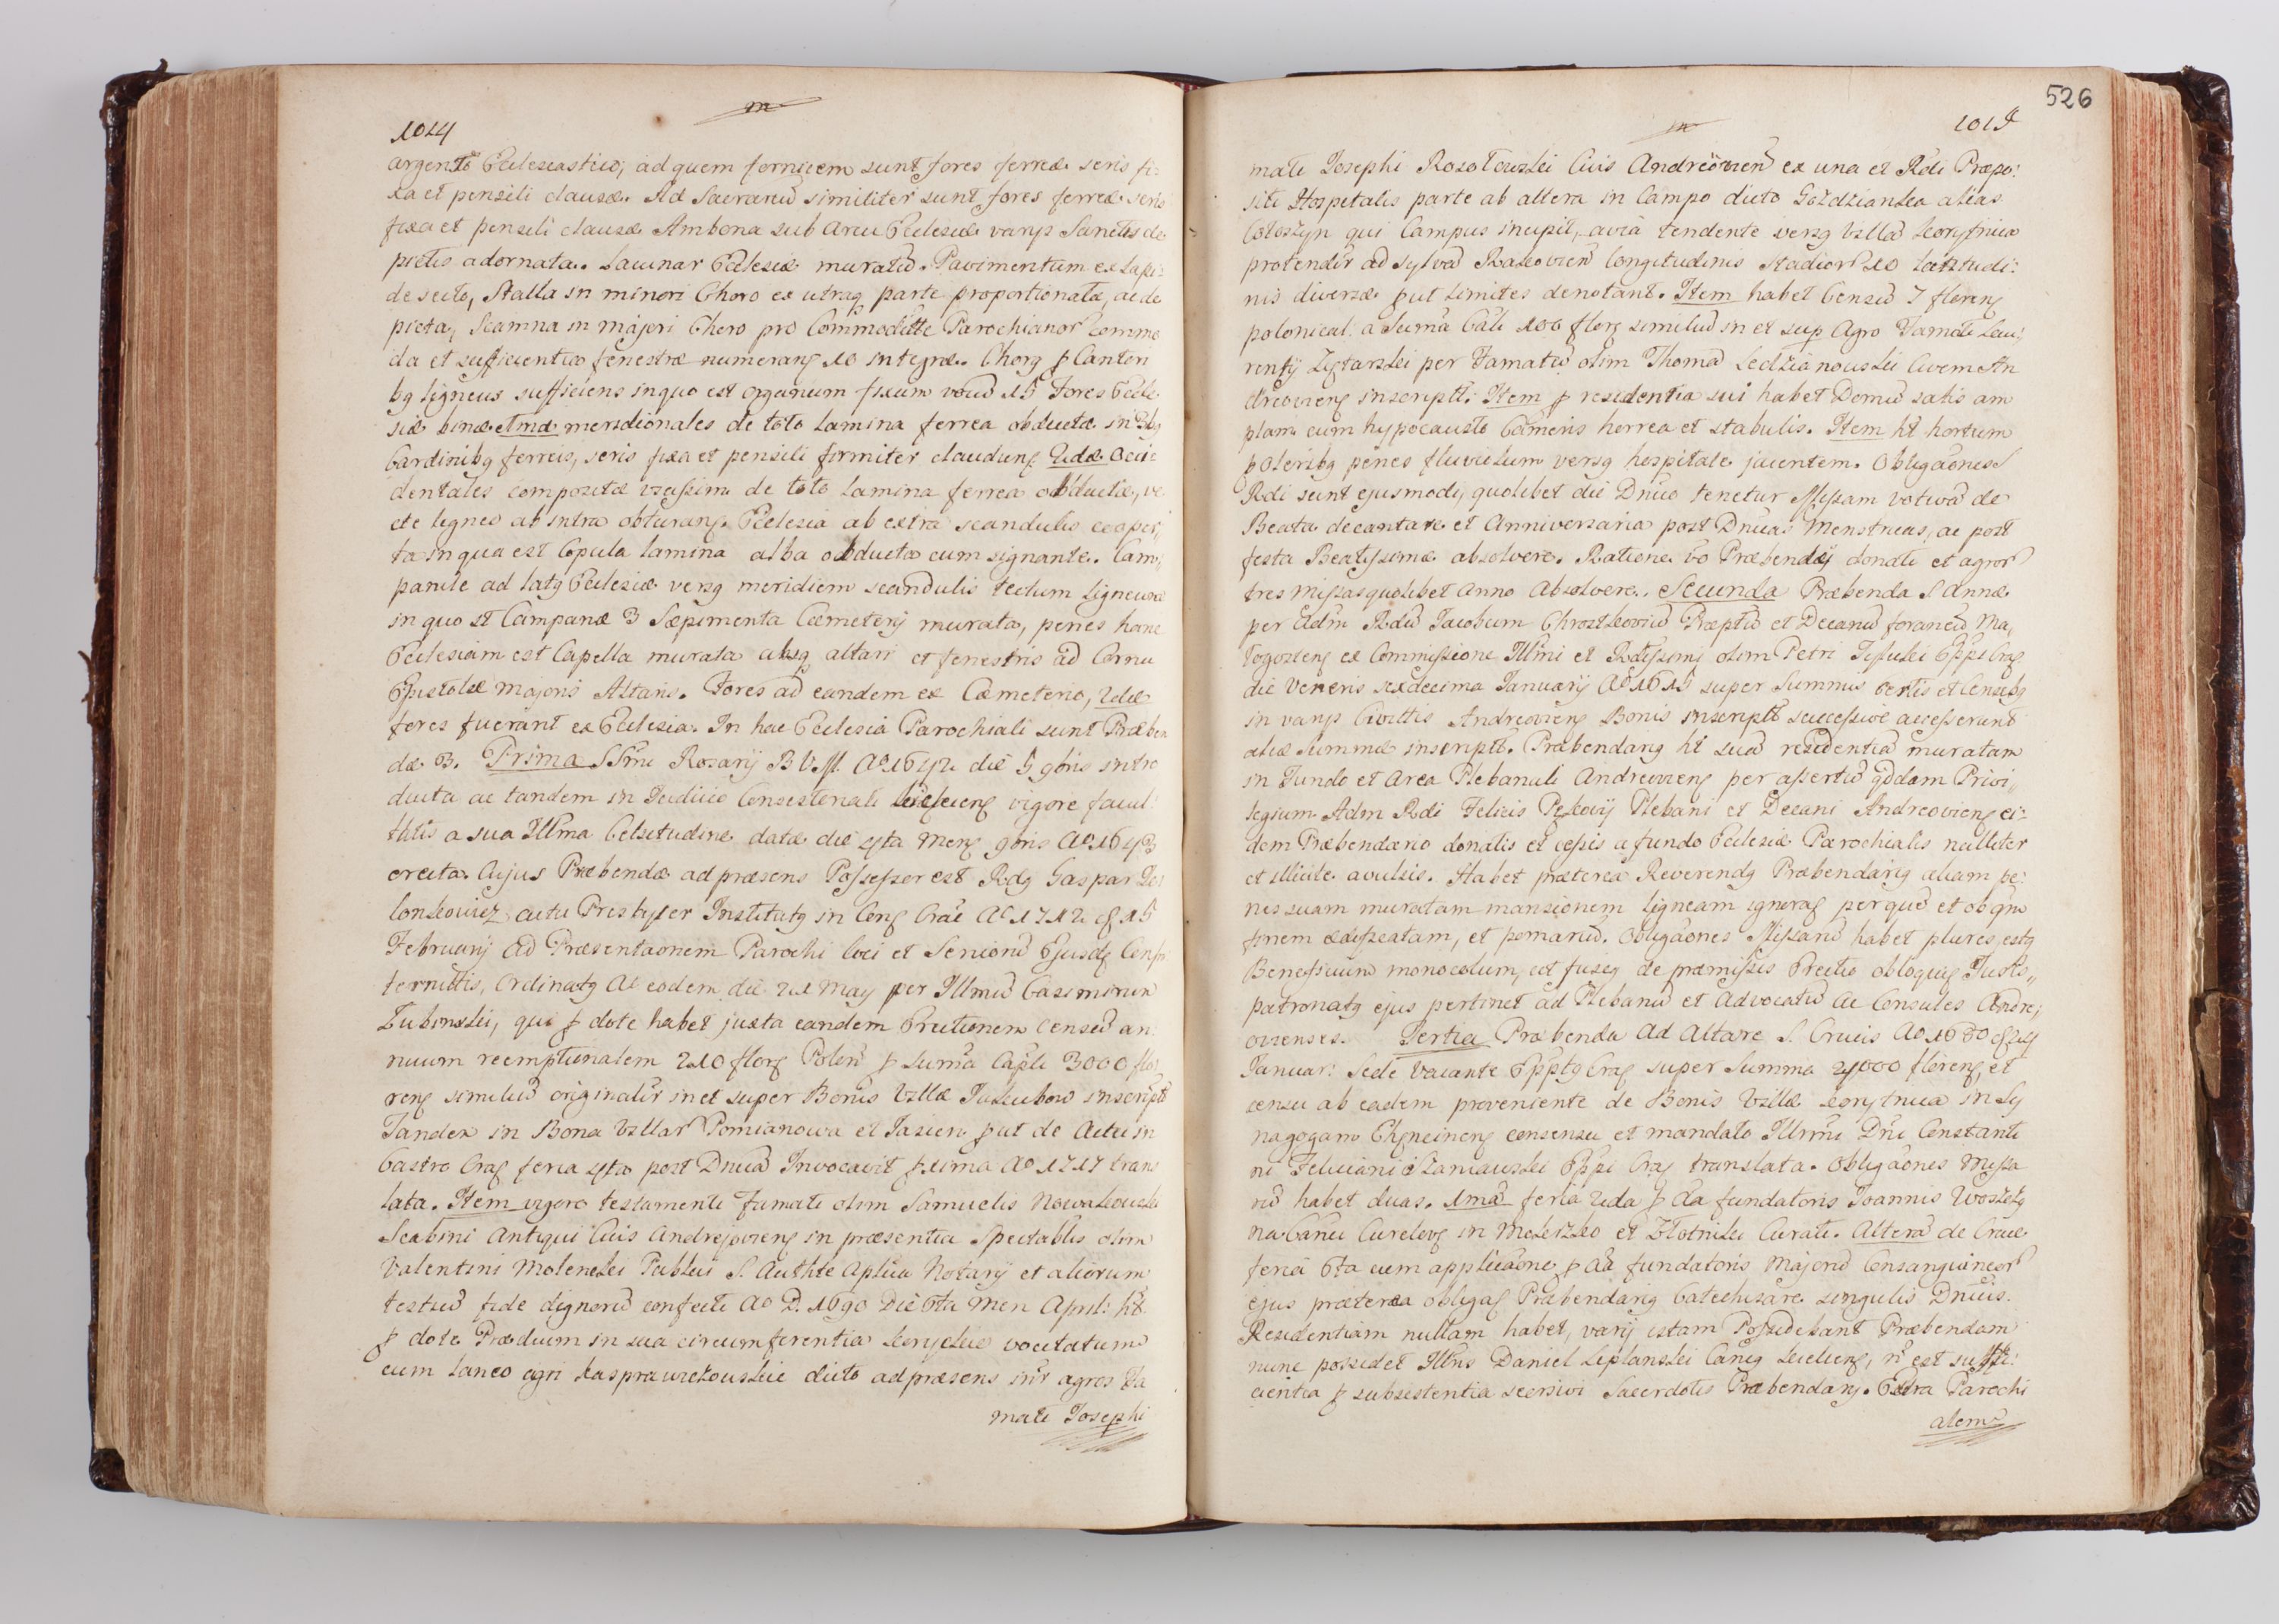 1014
argento Ecclesiastico, ad quem fornicem sunt fores ferreæ seris fi:
xa et pensili clausæ. Ad Sacrariũ similiter sunt fores ferreæ seris
fixa et pensili clausæ Ambona sub Arcu Ecclesiæ varijs Sanctis de
pictis adornata. Lacunar Ecclesiæ muratũ. Pavimentum ex Lapi:
de secto, Stalla in minori Choro ex utraq parte proportionata, ac de
picta, Scamna in majori Choro pro Commoditte Parochianor commo
da et sufficientia fenestræ numerant 10 integræ. Chorq p Cantori
bq ligneus sufficiens in quo est organum fixum vocũ 15 Fores Eccle
siæ binæ 1mæ meridionales de toto lamina ferrea obductæ in
Cardinibq ferreis, seris fixa et pensili firmiter claudunt 2dæ Occi
dentales de toto lamina ferrea obductæ, ve
cte ligneo ab intra obturant. Ecclesia ab extra scandulis cooper
ta in qua est Copula lamina alba obducta cum signante. Cam,
panile ad latq Ecclesiæ versq meridiem scandulis tectum ligneum
in quo st Campanæ 3 Sæpimenta Cæmeterij murata, penes hanc
Ecclesiam est Capella murata absq altari et fenestris ad Cornu
Epistolæ Majoris Altaris. Fores ad eandem ex Cæmeterio, 2dæ
fores fuerant ex Ecclesia. In hac Ecclesia Parochiali sunt Præben
dæ 3. Prima SSmi Rosarij B V M. Ao 1642 die 5 9bris intro
ducta ac tandem in Judicio Consistoriali vigore facul:
ttis a sua Illma Celsitudine datæ die 4ta Mens 9bris Ao 1643
erecta. Cujus Præbendæ ad præsens Possessor est Rdq Gaspar
actu Presbyter Institutq in Cons Crac Ao 1712 15
Februarij ad Præsentaonem Parochi loci et Seniorũ Ejusdq Conf
ternittis, Ordinatq Ao eodem die 21 Maij per Illmũ Casimirum
Łubinski, qui p dote habet juxta eandem Erectionem censũ an
nuum reemptionalem 210 flor Polon p Suma Capli 3000 flo
ren similiũ originalir in et super Bonis Villæ Jakubow inscript
Tandem in Bona Villar Pomianowa et Jasien put de Actu in
Castro Crac feria 4ta post Dnicã Invocavit pxima Ao 1717 trans
lata. Item vigore testamenti Famati olim Samuelis Nowakowski
Scabini Antiqui Civis Andrejovien in præsentia Spectablis olim
Valentini Molenski Publici S. Authte Aplica Notarij et aliorum
testiũ fide dignorũ confecti Ao D. 1690 Die 6ta Men April: ht
p dote Prædium in sua circumferentia vocitatum
cum laneo agri dicto ad præsens intr agros Fa
mati Josephi

526
1015
mati Josephi Civis Andreovien ex una et Rdi Præpo:
siti Hospitalis parte ab altera in Campo dicto alias
qui Campus incipit, a via tendente versq Villã
protendir ad sylvã Rakovien longitudinis Stadior 10 Latitudi:
nis diversæ put limites denotant. Item habet Censũ 7 floren
polonical. a Suma Capli 100 flor similiũ in et sup Agro Famati Lau:
rentij per Famatũ olim Thomã Civem An
dreovien inscript. Item p residentia sui habet Domũ satis am
plam cum hypocausto Cameris horrea et stabulis. Item ht hortum
p olenbq penes fluviolum versq hospitale jacentem. Obligaones
Rdi sunt ejusmodi, quolibet die Dnico tenetur Missam votivã de
Beata decantare et Anniversaria post Dnicas Menstruas, ac post
festa Beatissimæ absolvere. Ratione vo Præbendæ donati et agror
tres missas quolibet Anno absolvere. Secunda Præbenda S Annæ
per Adm Rdũ Jacobum Præptũ et Decanũ foraneũ Ma,
ex Commissione Illmi et Rdissimi olim Petri Eppi Crac
die Veneris sexdecima Januarij Ao 1615 super Summis certis et Censibq
in varijs Civittis Andreovien Bonis inscriptt successive accesserunt
aliæ summæ inscriptt. Præbendariq ht suã residentiã muratam
in Fundo et Area Plebanali Andreovien per assertũ qddam Privi,,
legium Adm Rdi Felicis Plebani et Decani Andreovien ei:
dem Præbendario donatis et cessis a fundo Ecclesiæ Parochialis nulliter
et illicite avulsis. Habet præterea Reverendq Præbendariq aliam pe:
nes suam muratam mansionem ligneam per quẽ et ob qm
finem ædificatam, et pomariũ. Obligaones Missarũ habet plures, estq
Beneficium monocolum, ut fuseq de præmissis Erectio obloquir Jus,,
patronatq ejus pertinet ad Plebanũ et Advocatũ ac Consules Andre,
ovienses. Tertia Præbenda ad Altare S. Crucis Ao 1630
Januar: Sede Vacante Epptq Crac super Summa 4000 floren, et
censu ab eadem proveniente de Bonis Villæ in Sy
nagogam Chęncinen consensu et mandato Illmi Dni Constanti
ni Feliciani Szaniawski Eppi Crac translata. Obligaones Missa
rũ habet duas. 1mã feria 2da p aa fundatoris Joannis
in et Złotniki Curati. Alterã de Cruce
feria 6ta cum applicaone p aa fundatoris Majorũ Consanguineor
ejus præterea obligat Præbendariq Catechisare singulis Dnicis.
Residentiam nullam habet, varij istam Possidebant Præbendam
nunc possidet Illms Daniel Canq Kielcen, nt est suffi:
cientia p subsistentia Sacerdotis Præbendarij. Extra Parochi
alem